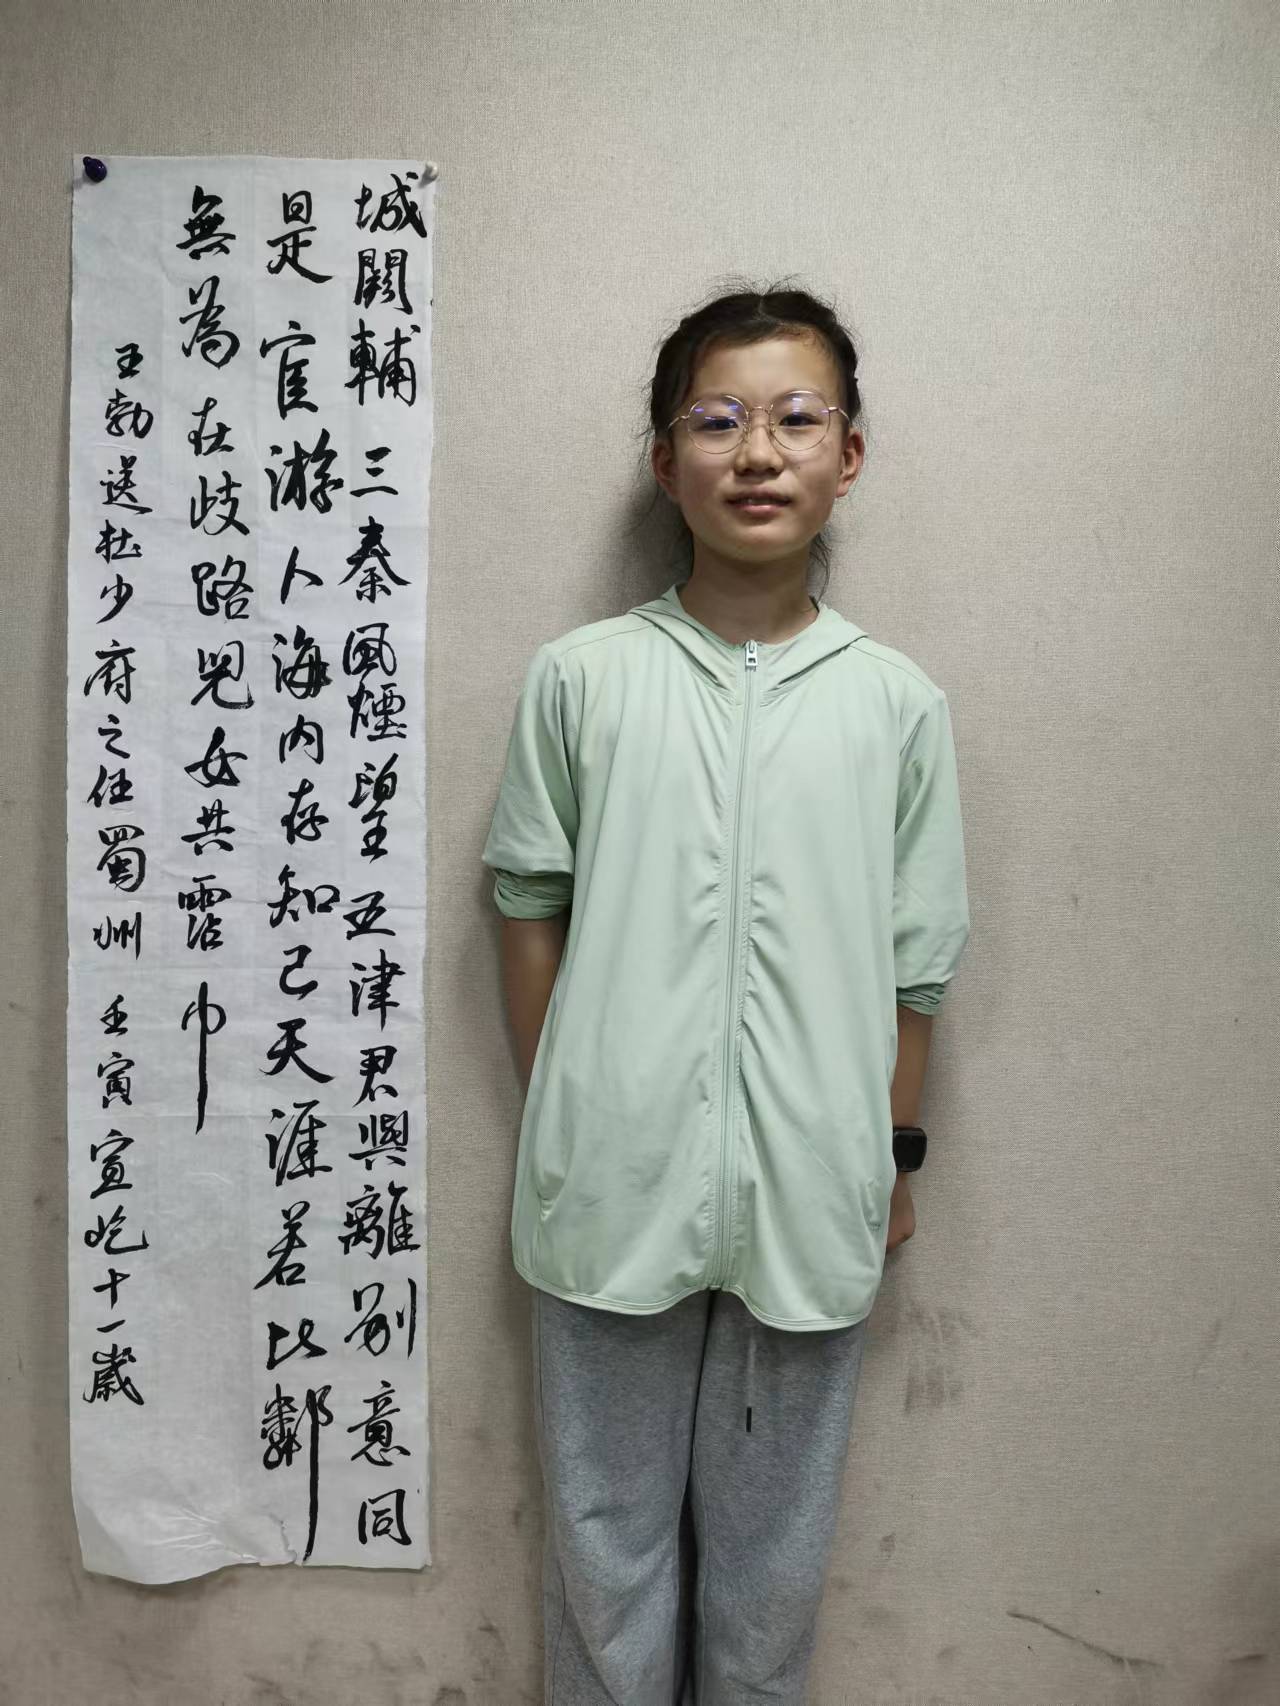 城闕輔三秦風煙望五津君與離别意同
是宦游人海内存知己天涯若比鄰
無為在歧路兒女共霑巾
王勃送杜少府之任蜀州 壬寅宣屹十一歲